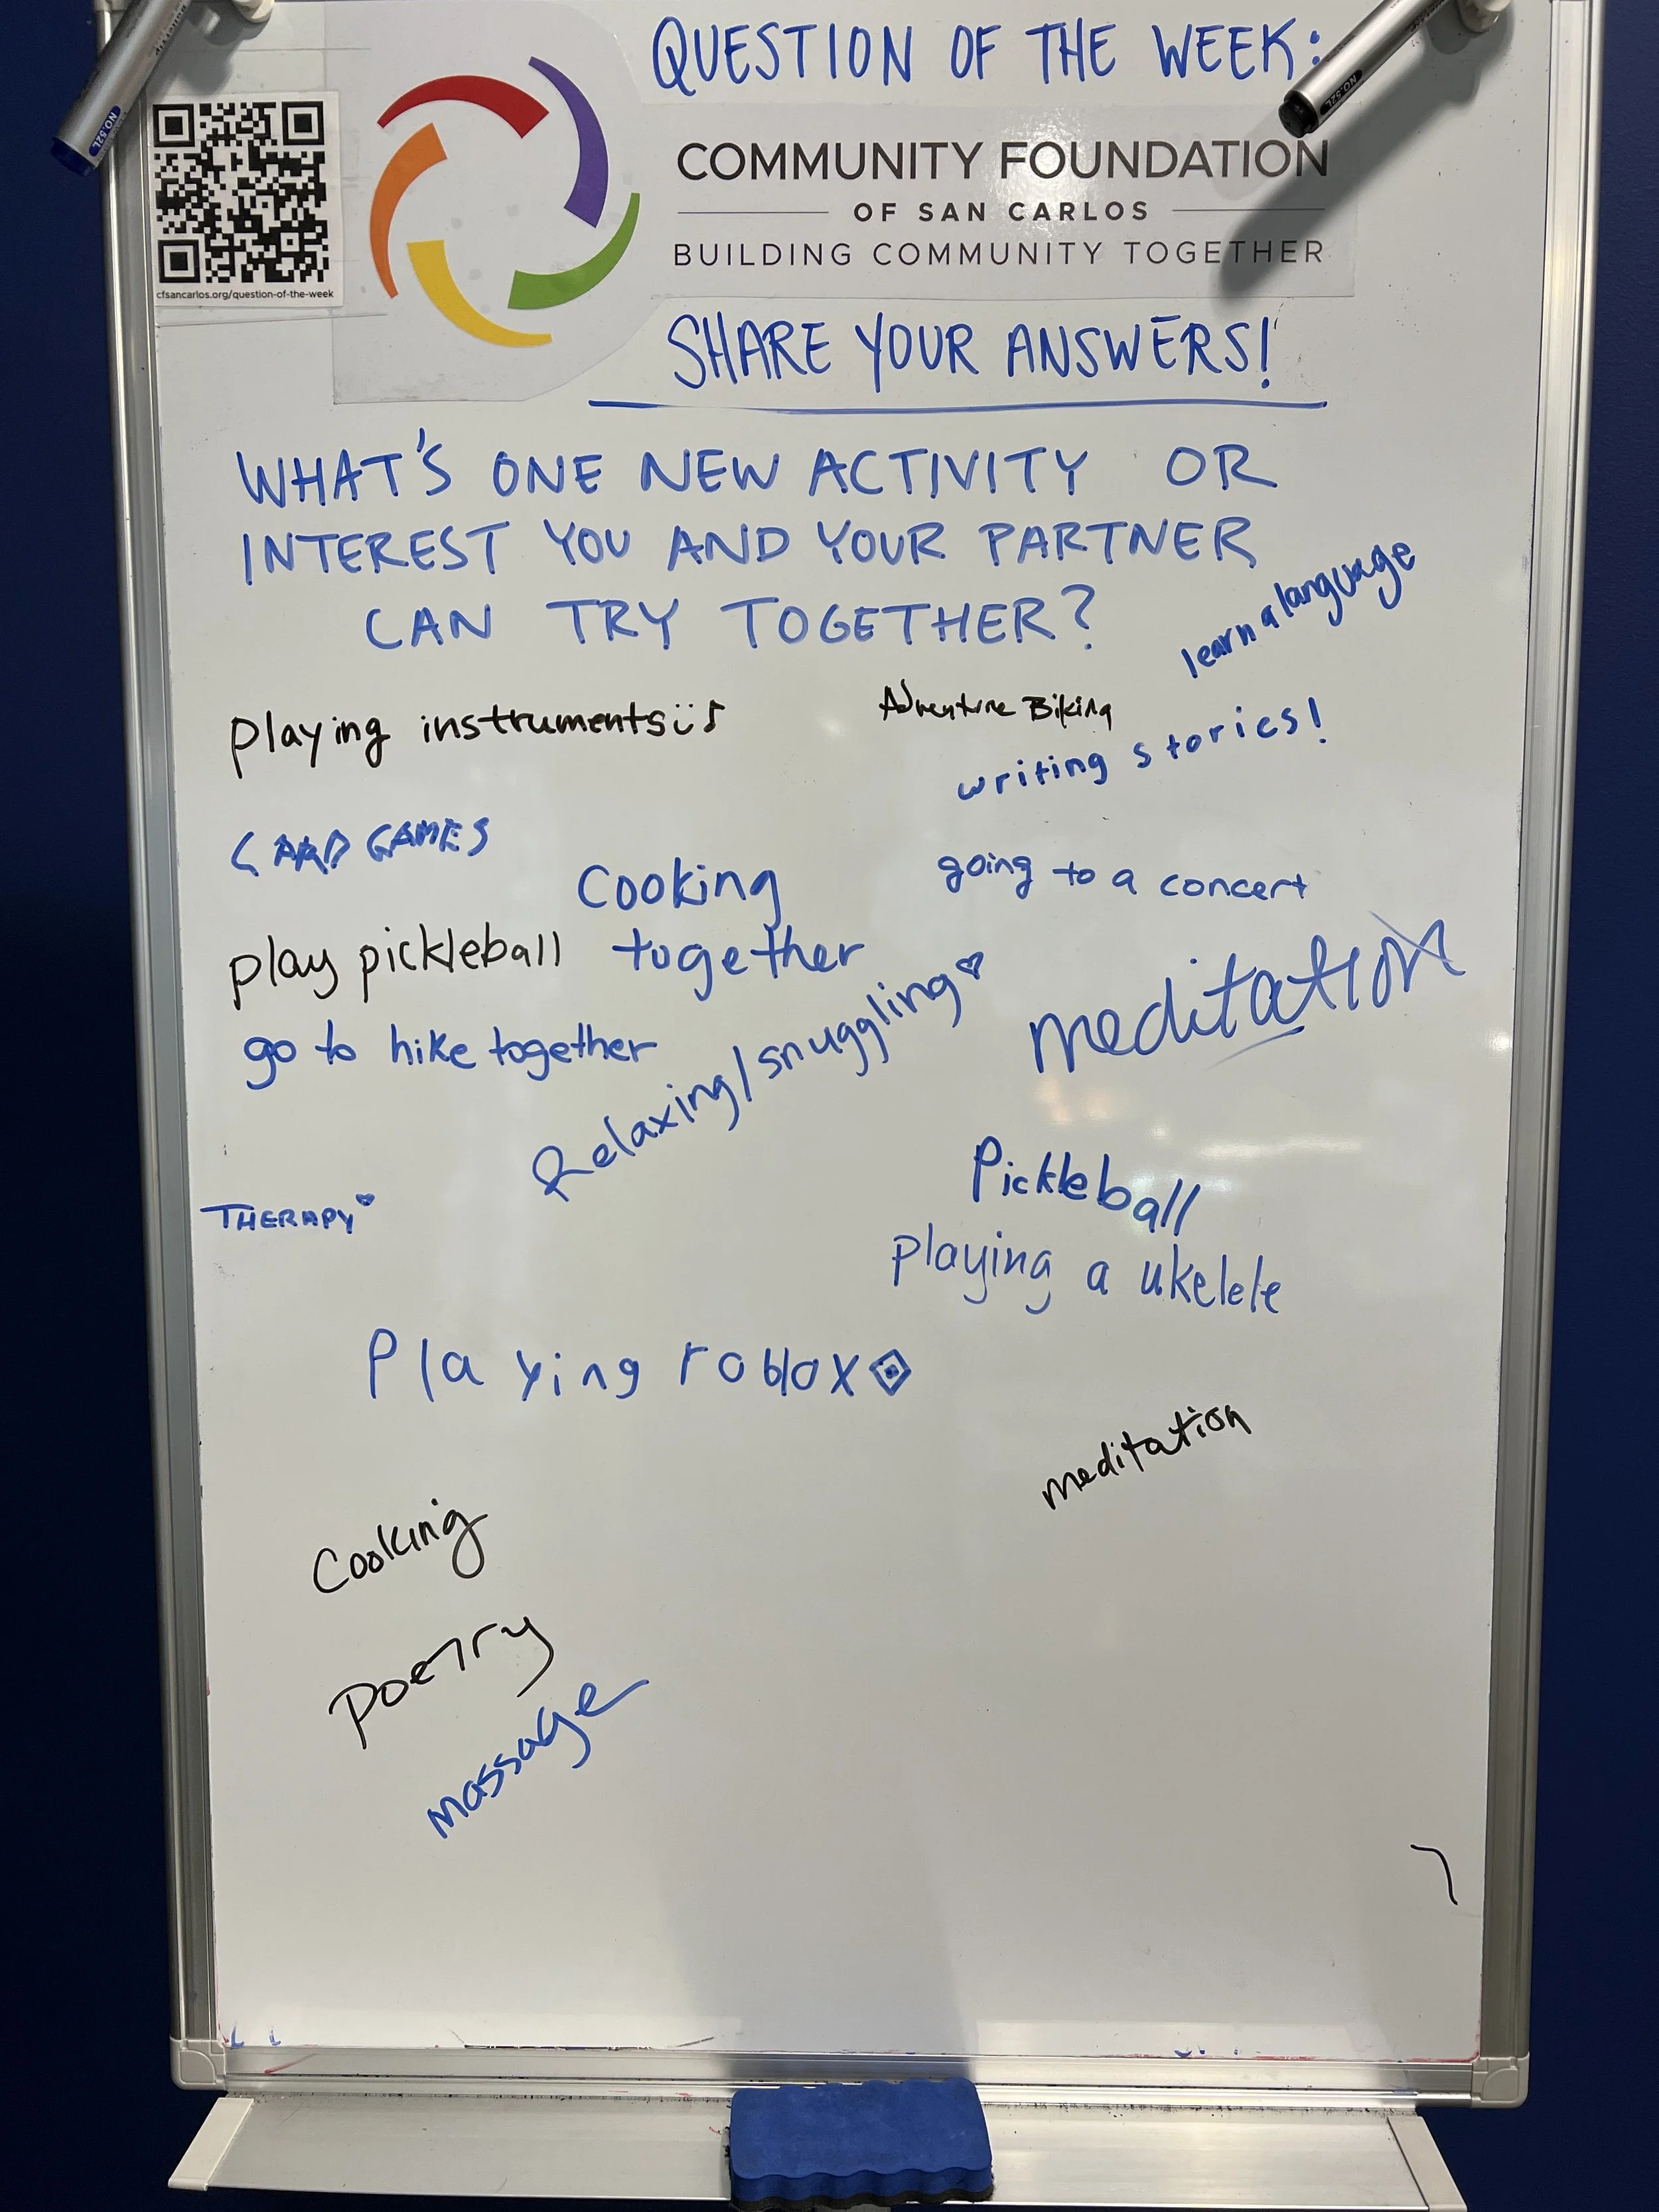 QUESTION OF THE WEEK:
COMMUNITY FOUNDATION
OF SAN CARLOS
BUILDING COMMUNITY TOGETHER
cfsancarlos.org/question-of-the-week
SHARE YOUR ANSWERS!
WHAT'S ONE NEW ACTIVITY OR
INTEREST YOU AND YOUR PARTNER
CAN TRY TOGETHER?
learn a language
playing instruments
Adventure Biking
writing stories!
CARD GAMES
Cooking
together
going to a concert
play pickleball
meditation
go to hike together
Relaxing/snuggling
THERAPY
Pickleball
Playing a ukelele
Playing roblox
meditation
Cooking
Poetry
massage
NO.52L
NO.52L